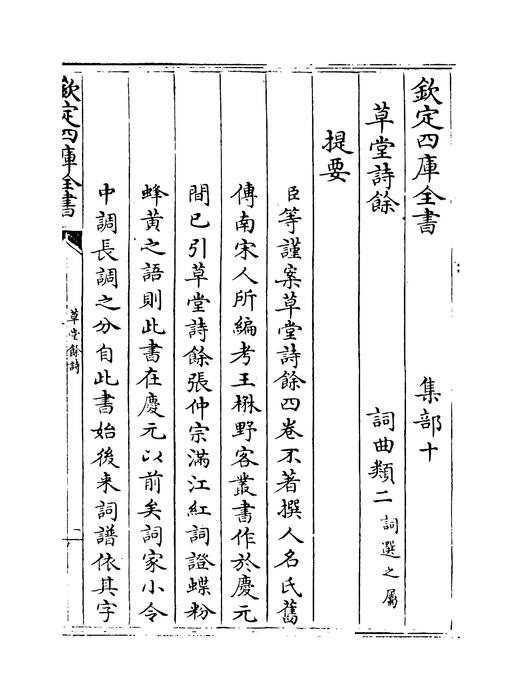 欽定四庫全書　集部十
草堂詩餘　詞曲類二　詞選之屬
提要
臣等謹案草堂詩餘四卷不著撰人名氏舊
傳南宋人所編考王楙野客叢書作於慶元
間已引草堂詩餘張仲宗滿江紅詞證蝶粉
蜂黃之語則此書在慶元以前矣詞家小令
中調長調之分自此書始後来詞譜依其字
欽定四庫全書
草堂餘詩